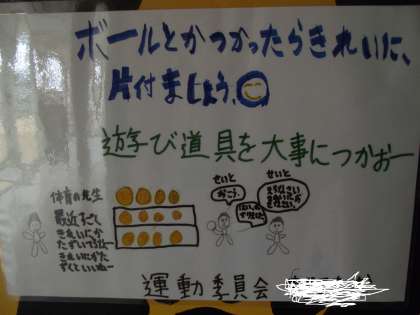 ボールとかつかったらきれいに、
片付ましょう。
遊び道具を大事につかおー
体育の先生
最近すこし
きれいにか
たずいてるねー
きれいにかた
ずくといいねー
せいと
おこう。
せいと
運動委員会